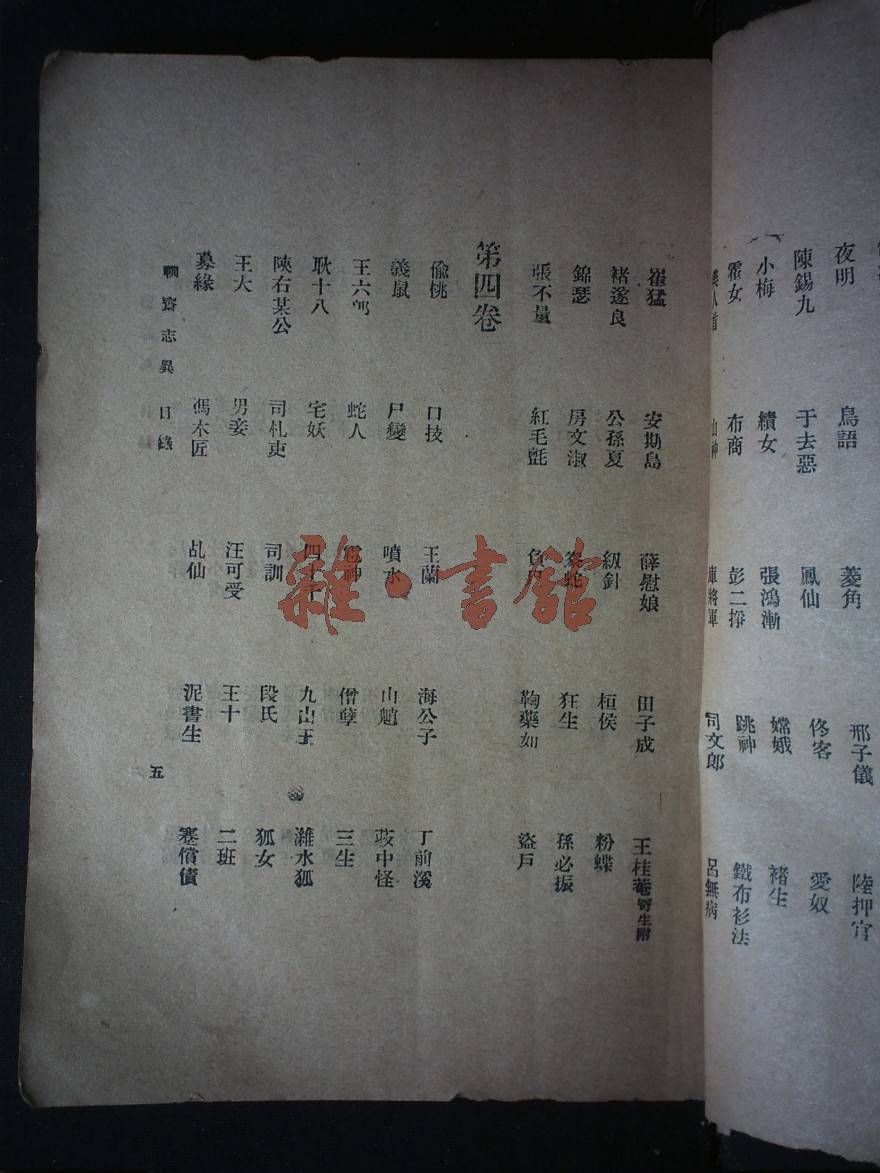 夜明 鳥語 菱角 邢子儀 陸押官
陳錫九 于去惡 鳳仙 佟客 愛奴
小梅 績女 張鴻漸 嫦娥 褚生
霍女 布商 彭二掙 跳神 鐵布衫法
美人首 山神 庫將軍 司文郎 呂無病
崔猛 安期島 薛慰娘 田子成 王桂菴寄生附
褚遂良 公孫夏 紉針 桓侯 粉蝶
錦瑟 房文淑 狂生 孫必振
張不量 紅毛氈 鞠藥如 盜戶
第四卷
偸桃 口技 王蘭 海公子 丁前溪
義鼠 尸變 噴水 山魈 荍中怪
王六郎 蛇人 雹神 僧孽 三生
耿十八 宅妖 四十千 九山王 濰水狐
陝右某公 司札吏 司訓 段氏 狐女
王大 男妾 汪可受 王十 二班
募緣 馮木匠 乩仙 泥書生 蹇償債
聊齋志異 目錄 五
雜·書館